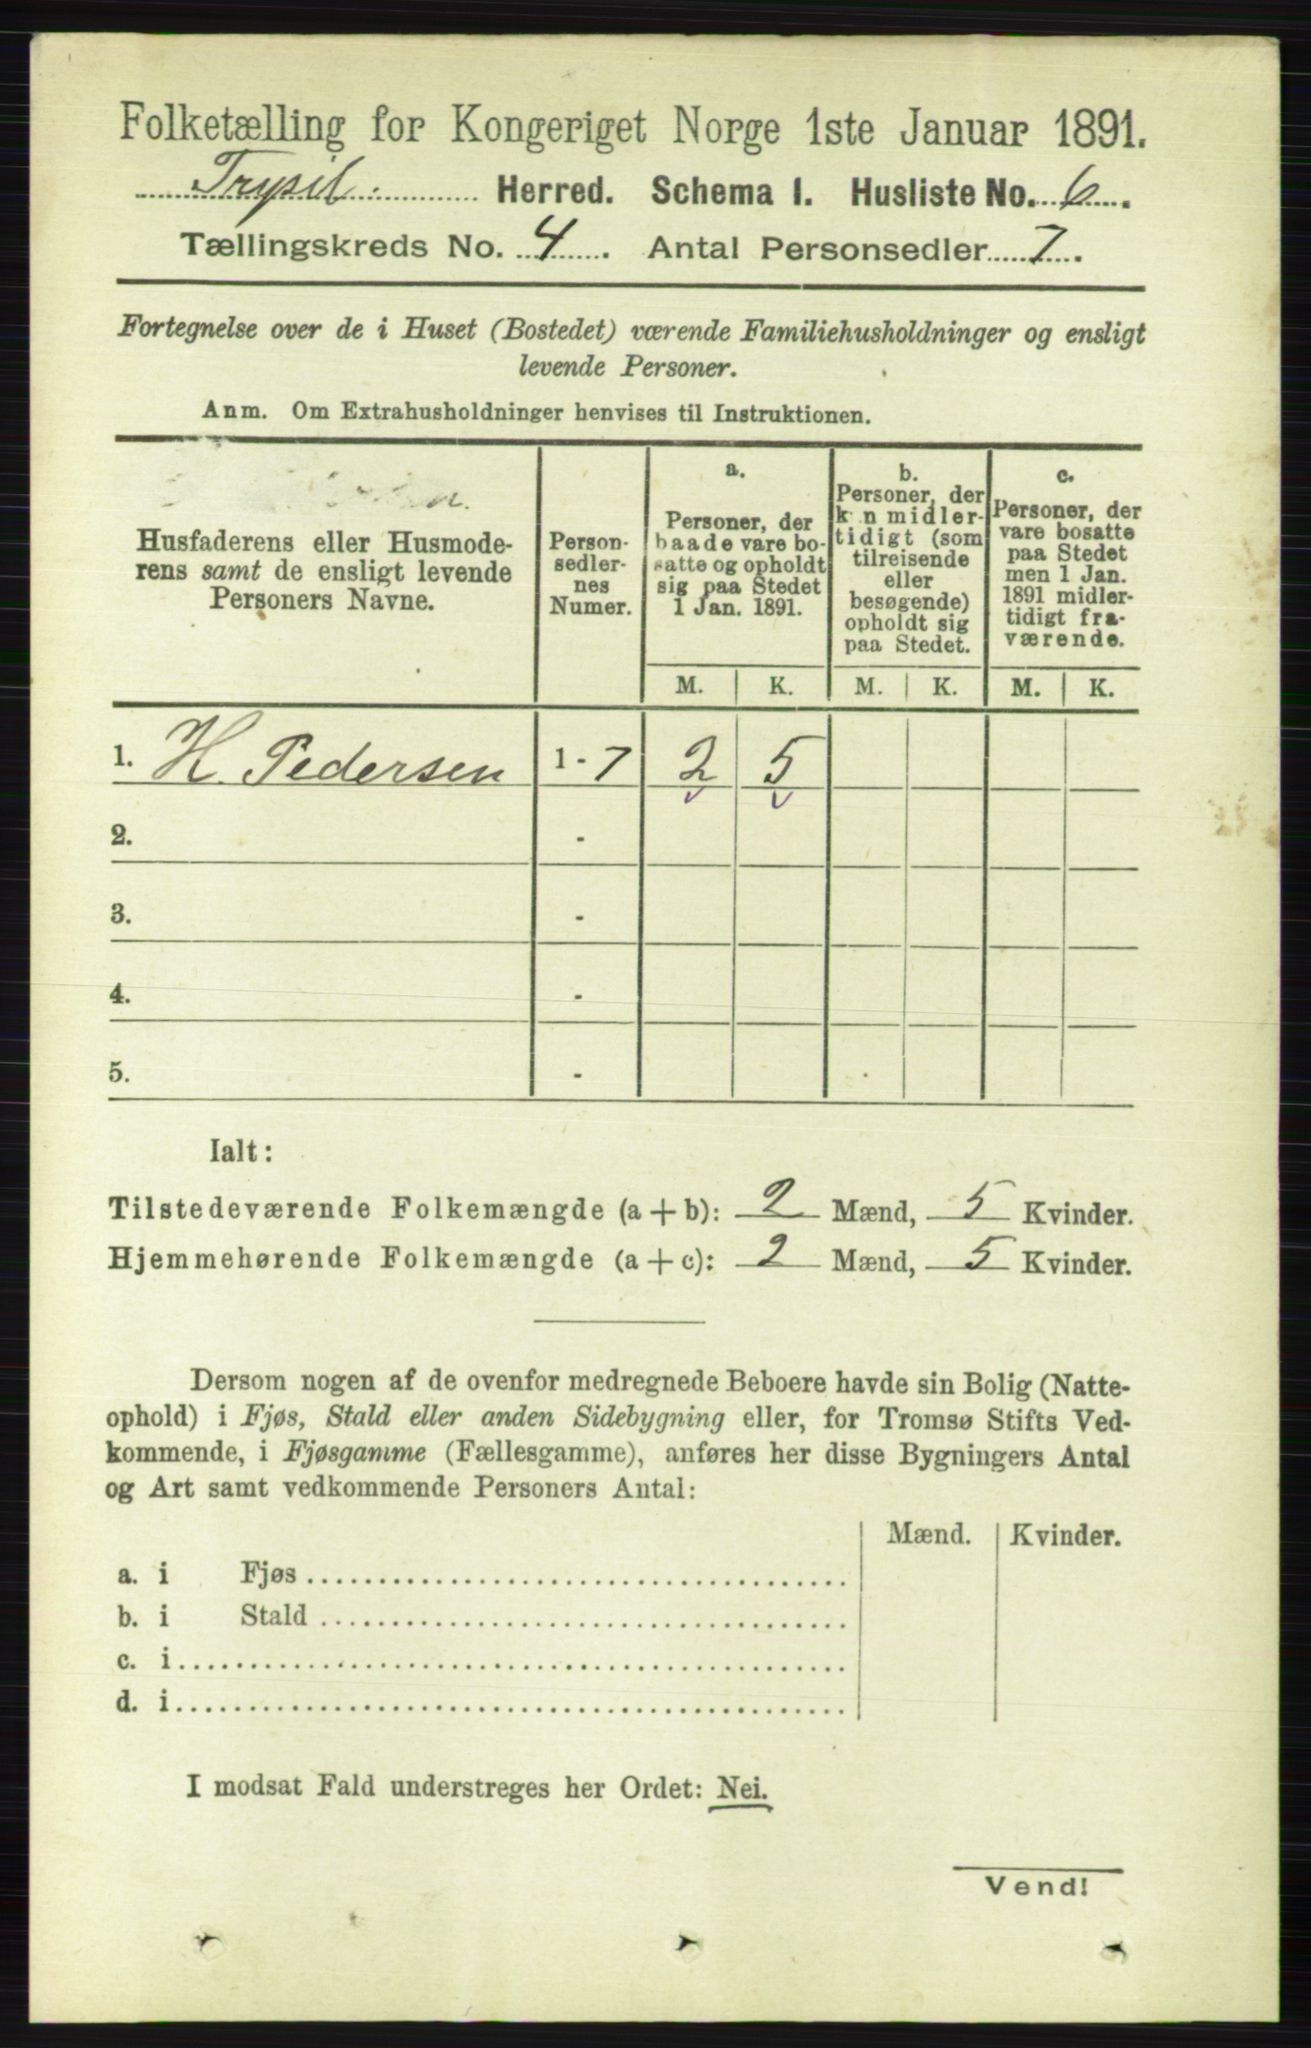 Folketælling for Kongeriget Norge 1ste Januar 1891.
Trysil Herred. Schema I. Husliste No. 6.
Tællingskreds No. 4. Antal Personsedler 7.
Fortegnelse over de i Huset (Bostedet) værende Familiehusholdninger og ensligt
levende Personer.
Anm. Om Extrahusholdninger henvises til Instruktionen.
Husfaderens eller Husmode-
rens samt de ensligt levende
Personers Navne.
Person-
sedler-
nes
Numer.
a.
Personer, der
baade vare bo-
satte og opholdt
sig paa Stedet
1 Jan. 1891.
b.
Personer, der
kun midler-
tidigt (som
tilreisende
eller
besøgende)
opholdt sig
paa Stedet.
c.
Personer, der
vare bosatte
paa Stedet
men 1 Jan.
1891 midler-
tidigt fra-
værende.
M. K. M. K. M. K.
1. H. Pedersen 1 - 7 2 5
2. -
3. -
4. -
5. -
Ialt:
Tilstedeværende Folkemængde (a + b): 2 Mænd, 5 Kvinder.
Hjemmehørende Folkemængde (a + c): 2 Mænd, 5 Kvinder.
Dersom nogen af de ovenfor medregnede Beboere havde sin Bolig (Natte-
ophold) i Fjøs, Stald eller anden Sidebygning eller, for Tromsø Stifts Ved-
kommende, i Fjøsgamme (Fællesgamme), anføres her disse Bygningers Antal
og Art samt vedkommende Personers Antal:
Mænd. Kvinder.
a. i Fjøs
b. i Stald
c. i
d. i
I modsat Fald understreges her Ordet: Nei.
Vend!